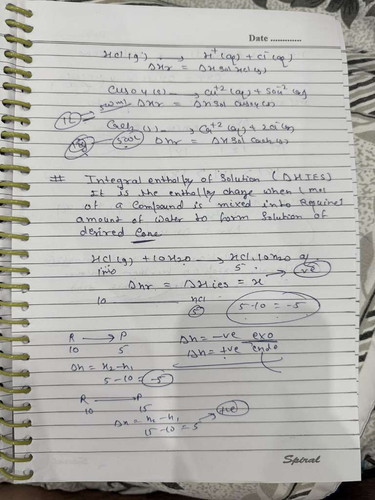 Date ............
HCl(g) → H⁺(aq) + Cl⁻(aq)
ΔHr = ΔHsol HCl(g)
CuSO4(s) → Cu⁺²(aq) + SO4⁻²(aq)
ΔHr = ΔHsol CuSO4(s)
1L
500ml
ΔHr = ΔHsol
# Integral enthalpy of Solution (ΔHIES)
It is the enthalpy change when 1 mol
of a Compound is mixed into Required
amount of water to form Solution of
desired Conc
HCl(g) + 10H2O → HCl.10H2O
5
ΔHr = ΔHies = x
-ve
10 HCl
5
5-10 = -5
R → P
10 5
ΔH = -ve exo
ΔH = +ve endo
ΔH = H2 - H1
5-10 = -5
R → P
10 15
ΔH = H2 - H1
15-10 = 5
+ve
Spiral